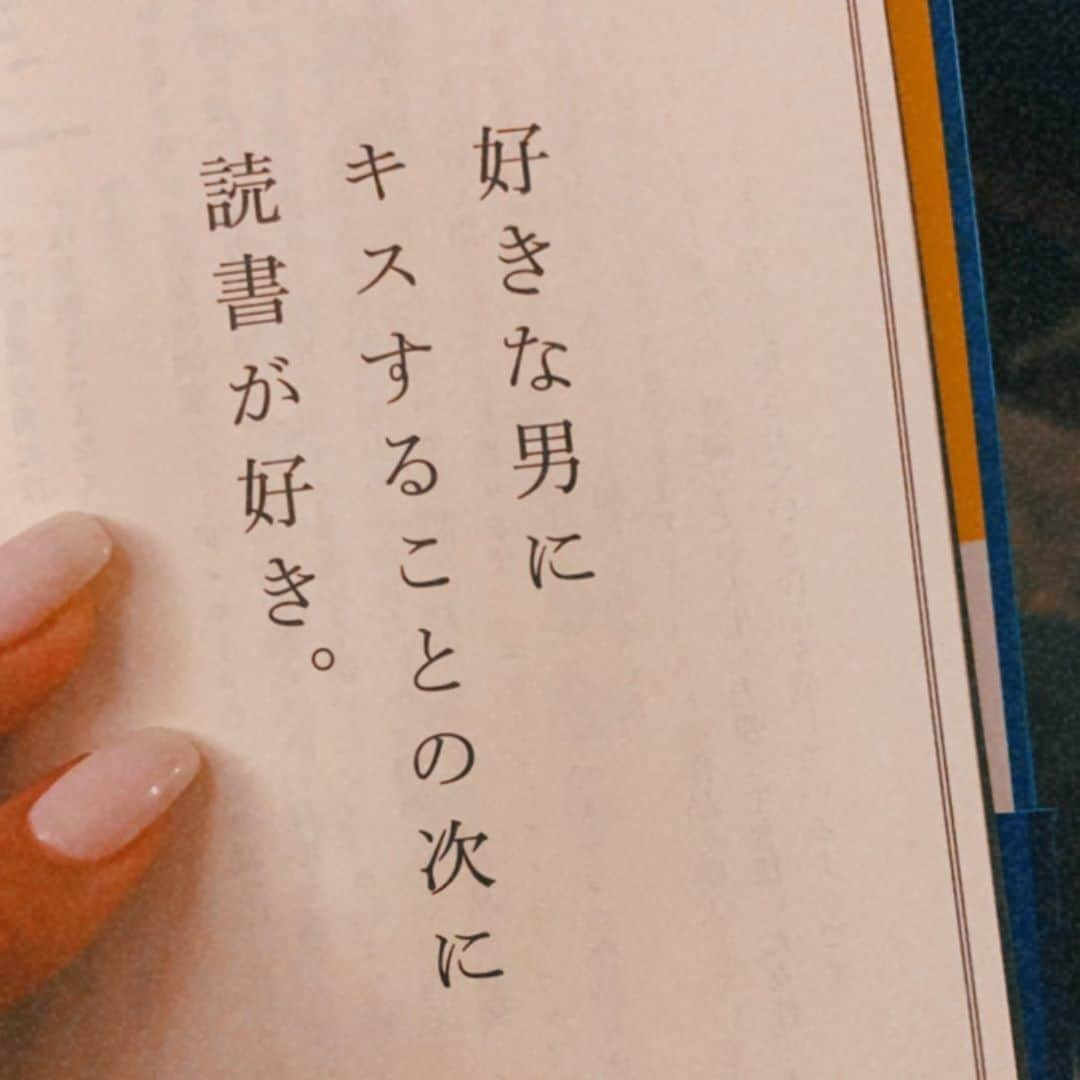 好きな男に
キスすることの次に
読書が好き。